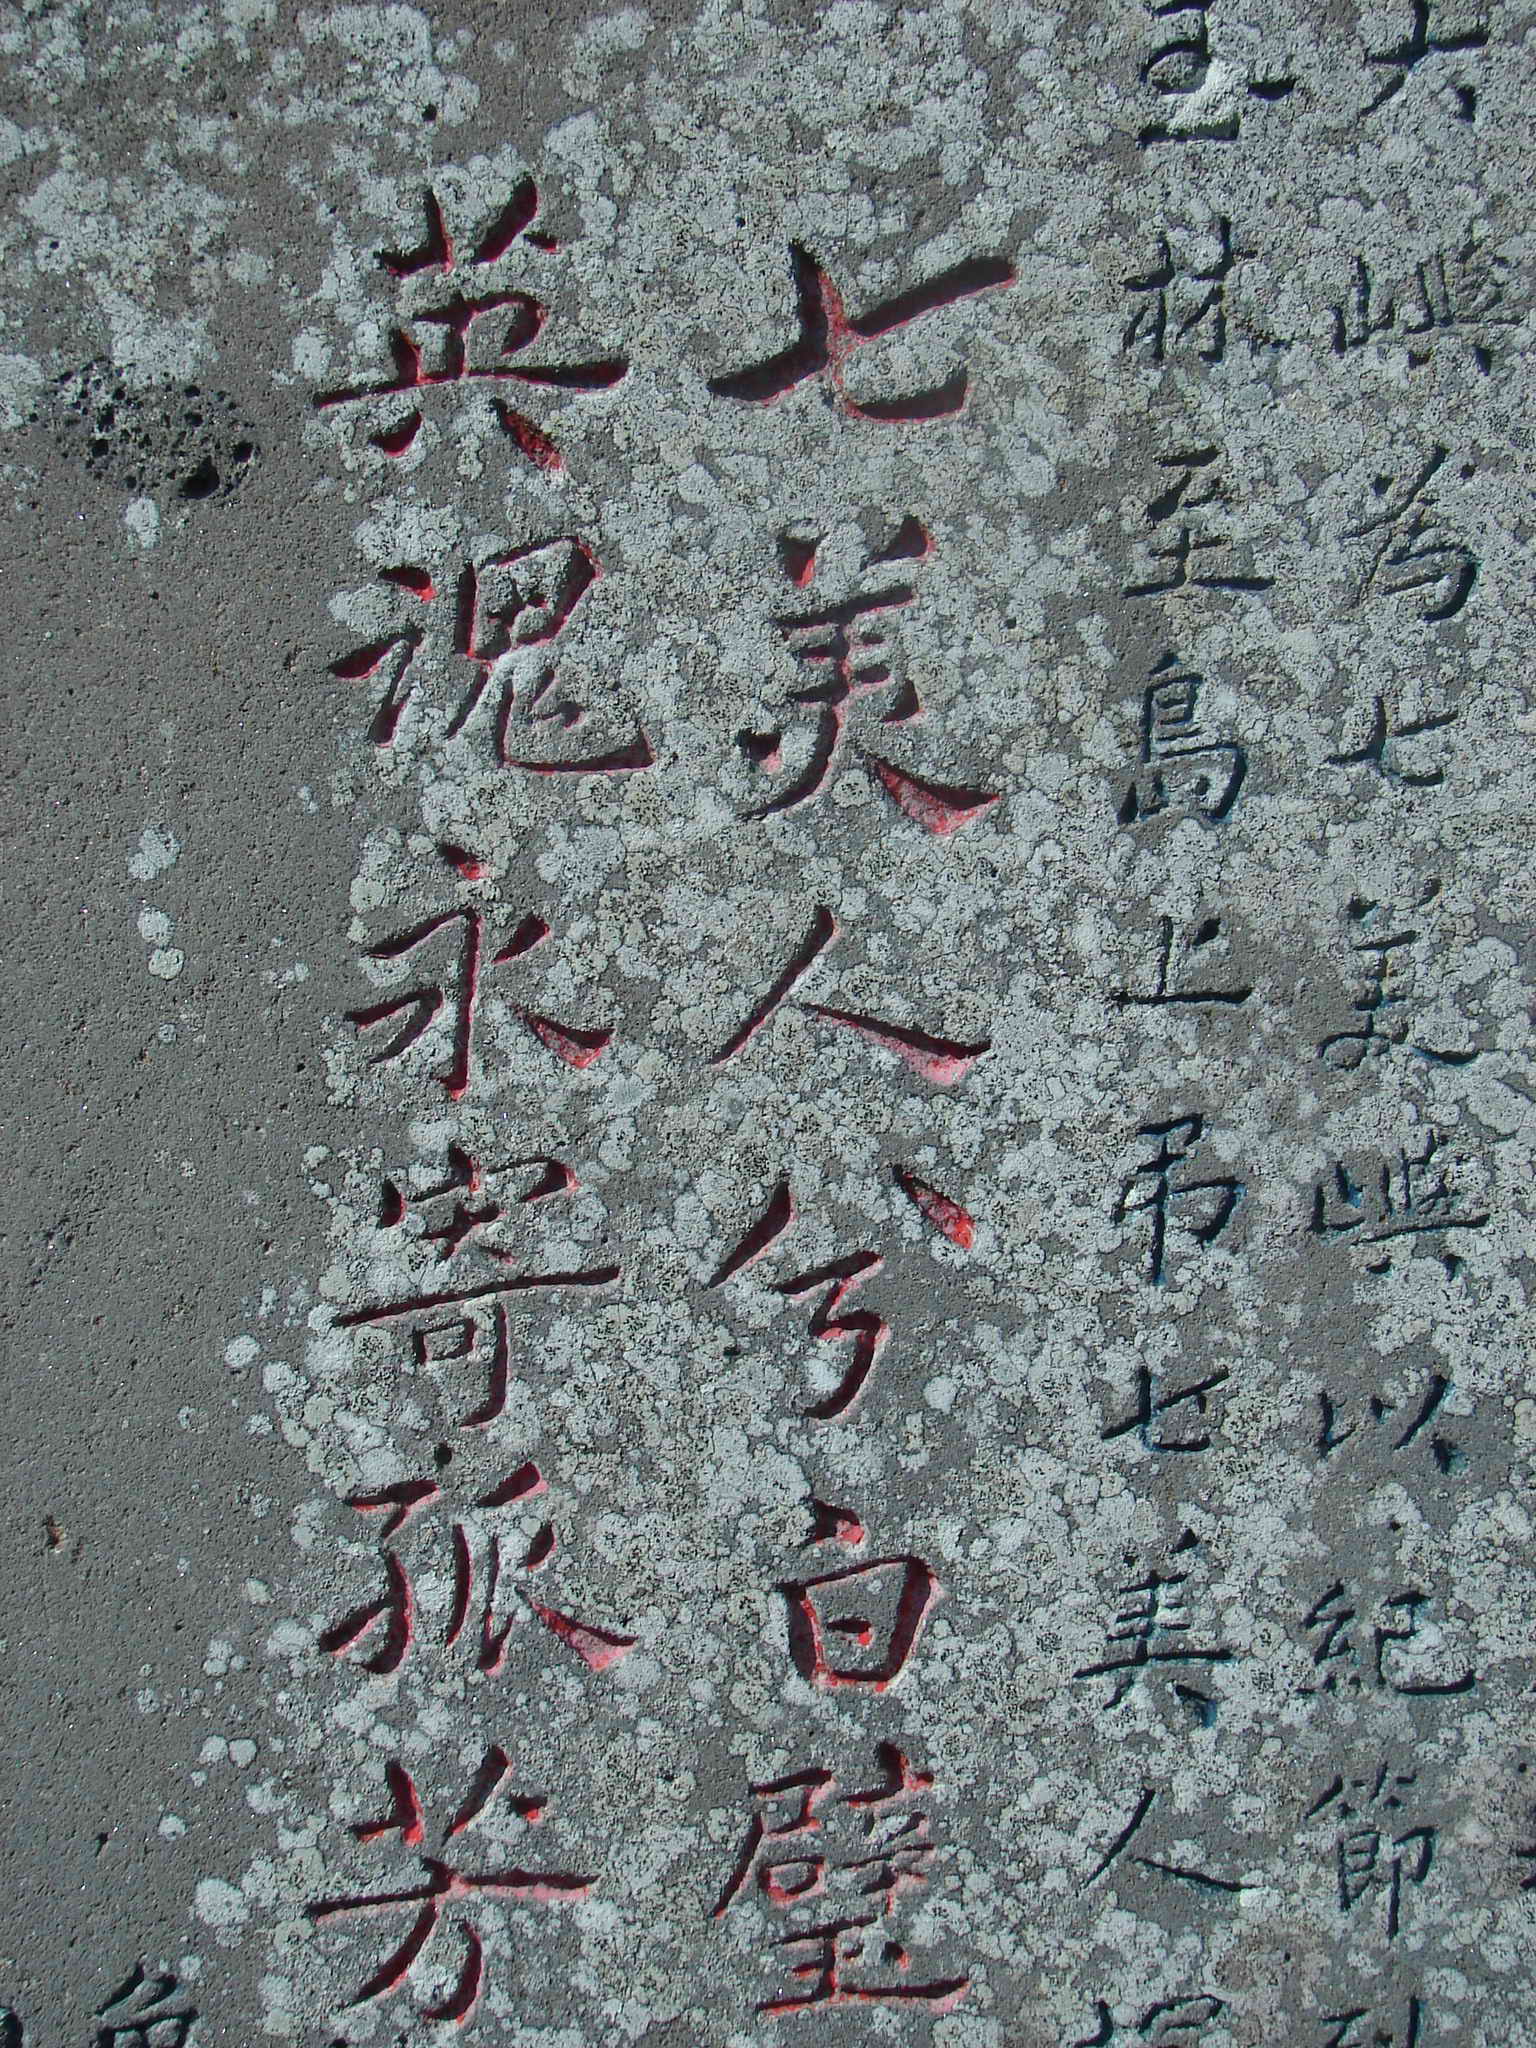 大嶼為七美嶼以紀節
至島上弔七美人
七美人兮白璧
英魂永寄孤芳